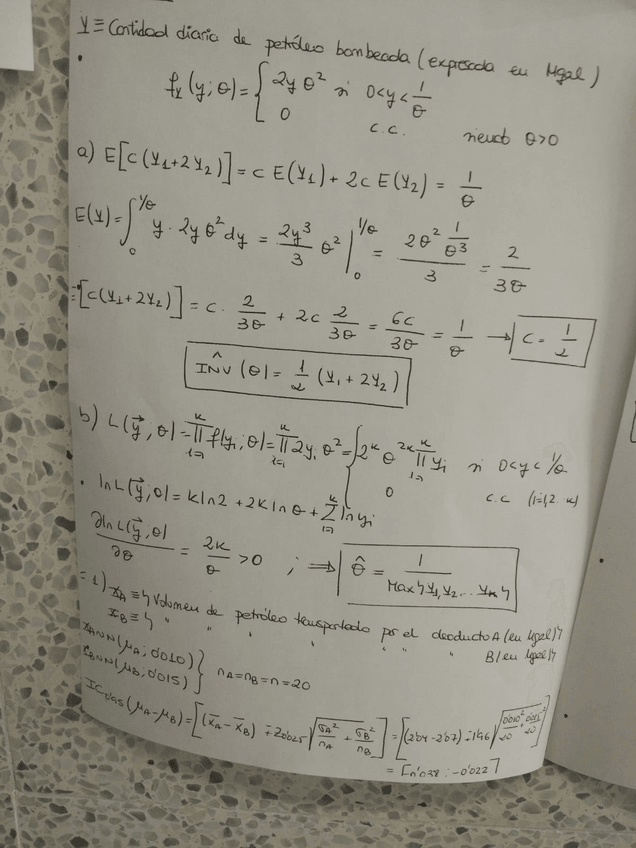 Y ≡ Cantidad diaria de petróleo bombeada (expresada en Mgal)
f_Y(y; θ) = { 2y θ² si 0<y<1/θ
0 c.c. siendo θ>0
a) E[c(Y₁+2Y₂)] = c E(Y₁) + 2c E(Y₂) = 1/θ
E(Y) = ∫₀^{1/θ} y · 2y θ² dy = 2y³/3 θ² |₀^{1/θ} = (2θ² 1/θ³)/3 = 2/3θ
[c(Y₁+2Y₂)] = c · 2/3θ + 2c 2/3θ = 6c/3θ = 1/θ → c = 1/2
INV̂(θ) = 1/2 (Y₁+2Y₂)
b) L(y⃗, θ) = ∏_{i=1}^{k} f(y_i; θ) = ∏_{i=1}^{k} 2y_i θ² = { 2^k θ^{2k} ∏_{i=1}^{k} y_i si 0<y<1/θ
0 c.c (i=1,2..k)
ln L(y⃗, θ) = k ln 2 + 2k ln θ + Σ_{i=1}^{k} ln y_i
∂ln L(y⃗, θ)/∂θ = 2k/θ > 0 ; ⇒ θ̂ = 1/Max{Y₁, Y₂... Y_k}
1) X_A ≡ { Volumen de petróleo transportado por el oleoducto A (en Mgal)}
X_B ≡ { " " " " " " B (en Mgal)}
X_A∼N(μ_A; 0'010)
X_B∼N(μ_B; 0'015) } n_A=n_B=n=20
IC_0'95(μ_A−μ_B) = [(x̄_A−x̄_B) ∓ z_0'025 √(σ_A²/n_A + σ_B²/n_B)] = [(2'04−2'07) ∓ 1'96 √(0'010²/20 + 0'015²/20)]
= [-0'038 ; -0'022]